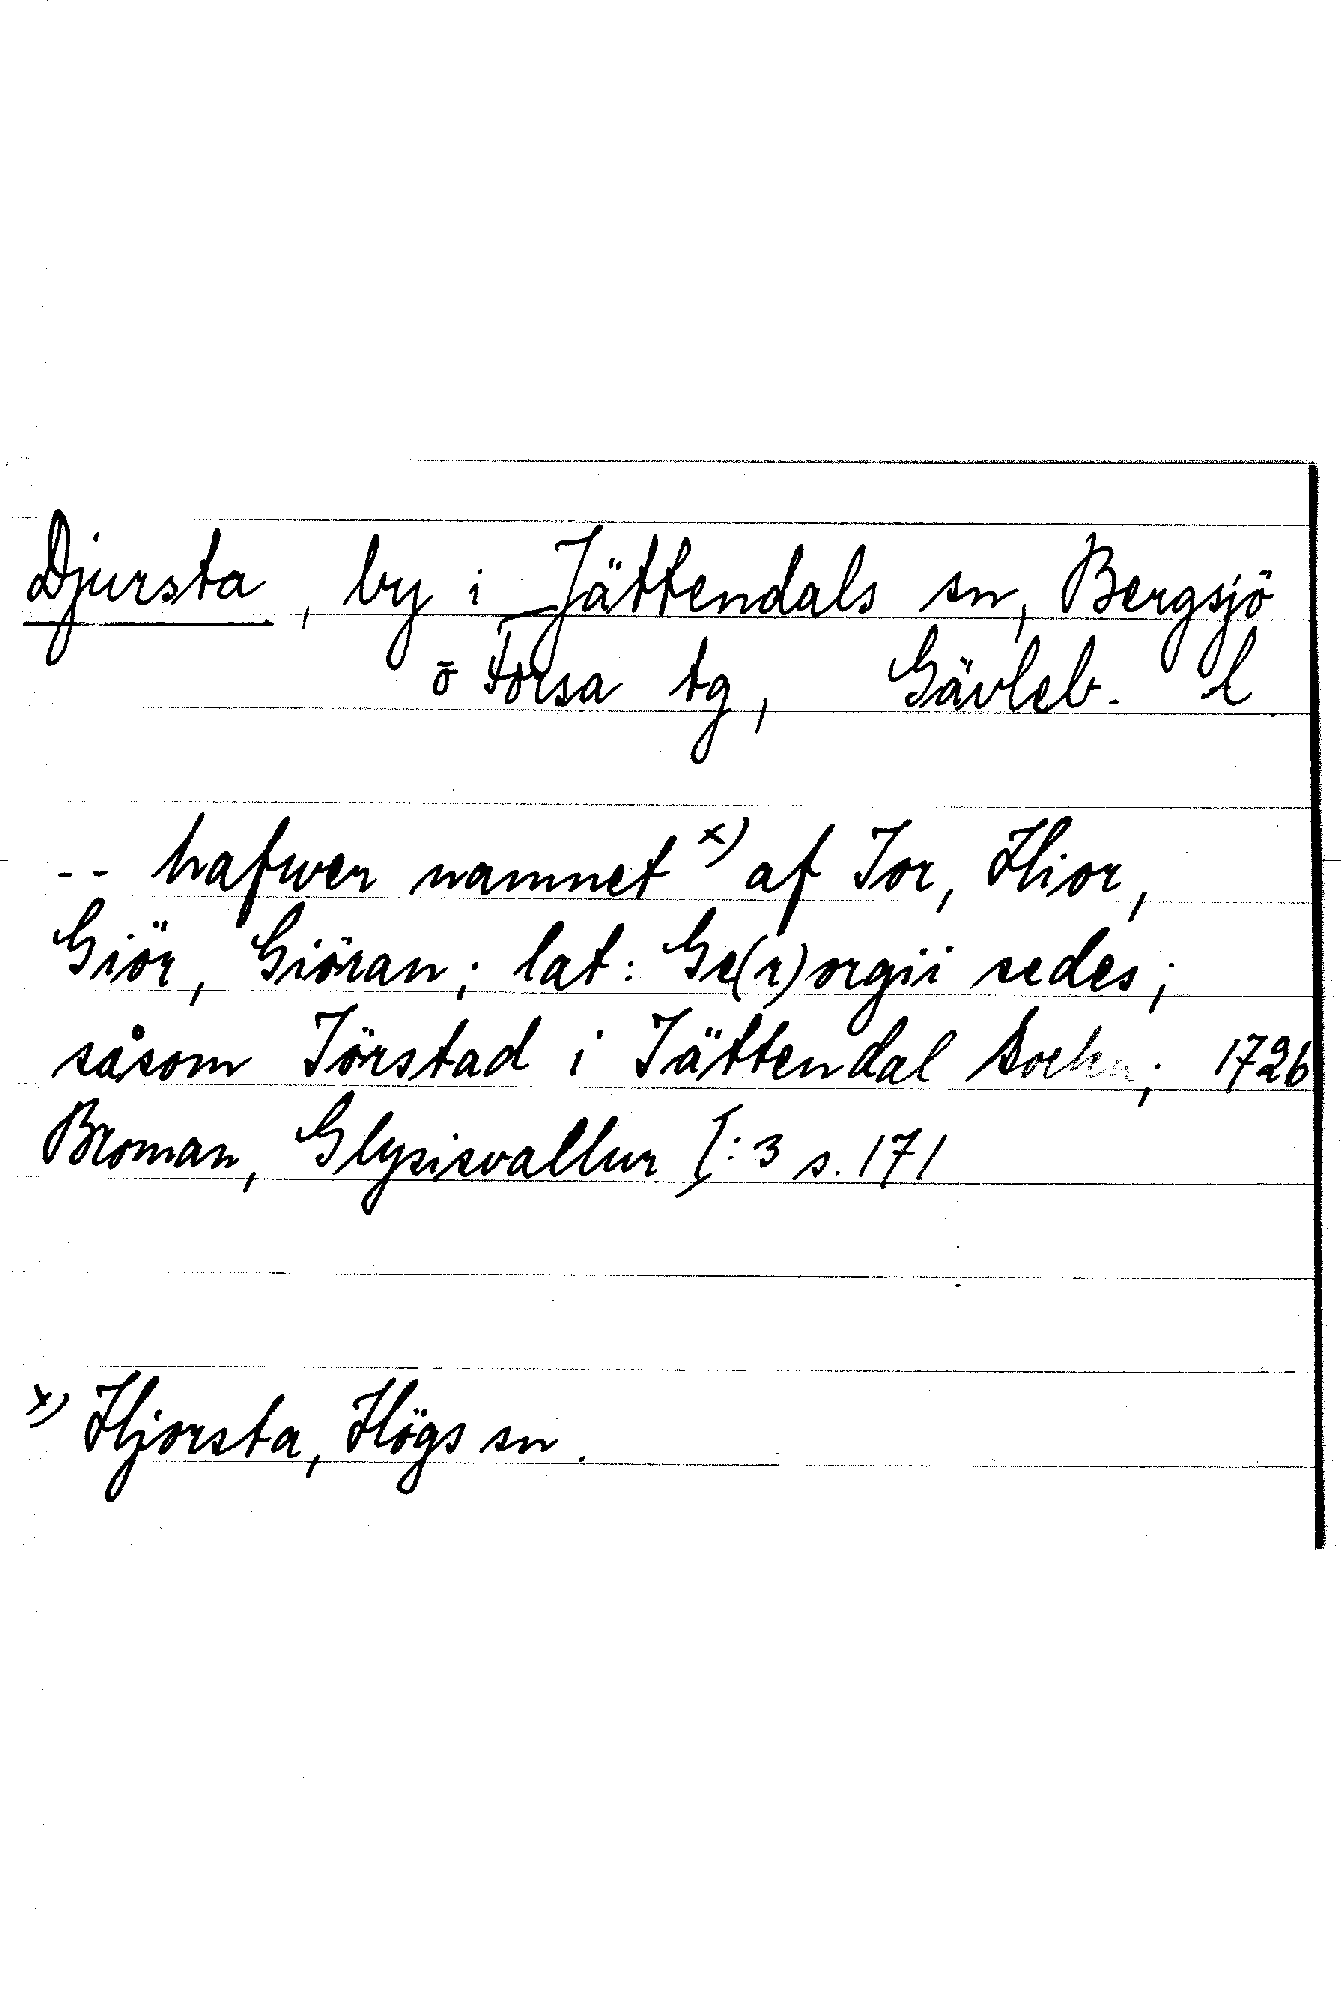 Djursta, by i Jättendals sn, Bergsjö
o Forsa tg, Gävleb. l
-- hafwer namnet x) af Jor, Hior,
Giör, Giöran; lat: Ge(r)orgii sedes;
såsom Jörstad i Jättendal Sockn; 1726
Broman, Glysisvallur I:3 s. 171
x) Hjorsta, Högs sn.